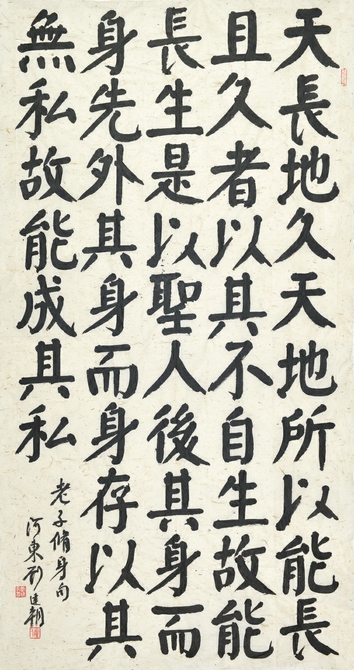 天長地久天地所以能長
且久者以其不自生故能
長生是以聖人後其身而
身先外其身而身存以其
無私故能成其私
老子脩身句
河東